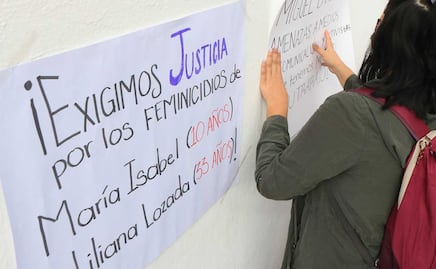 ¡EXIGIMOS JUSTICIA
por los FEMINICIDIOS de
María Isabel (10 AÑOS)
Liliana Lozada (33 AÑOS)!
MIGUEL
AMENAZAS A MEDIOS